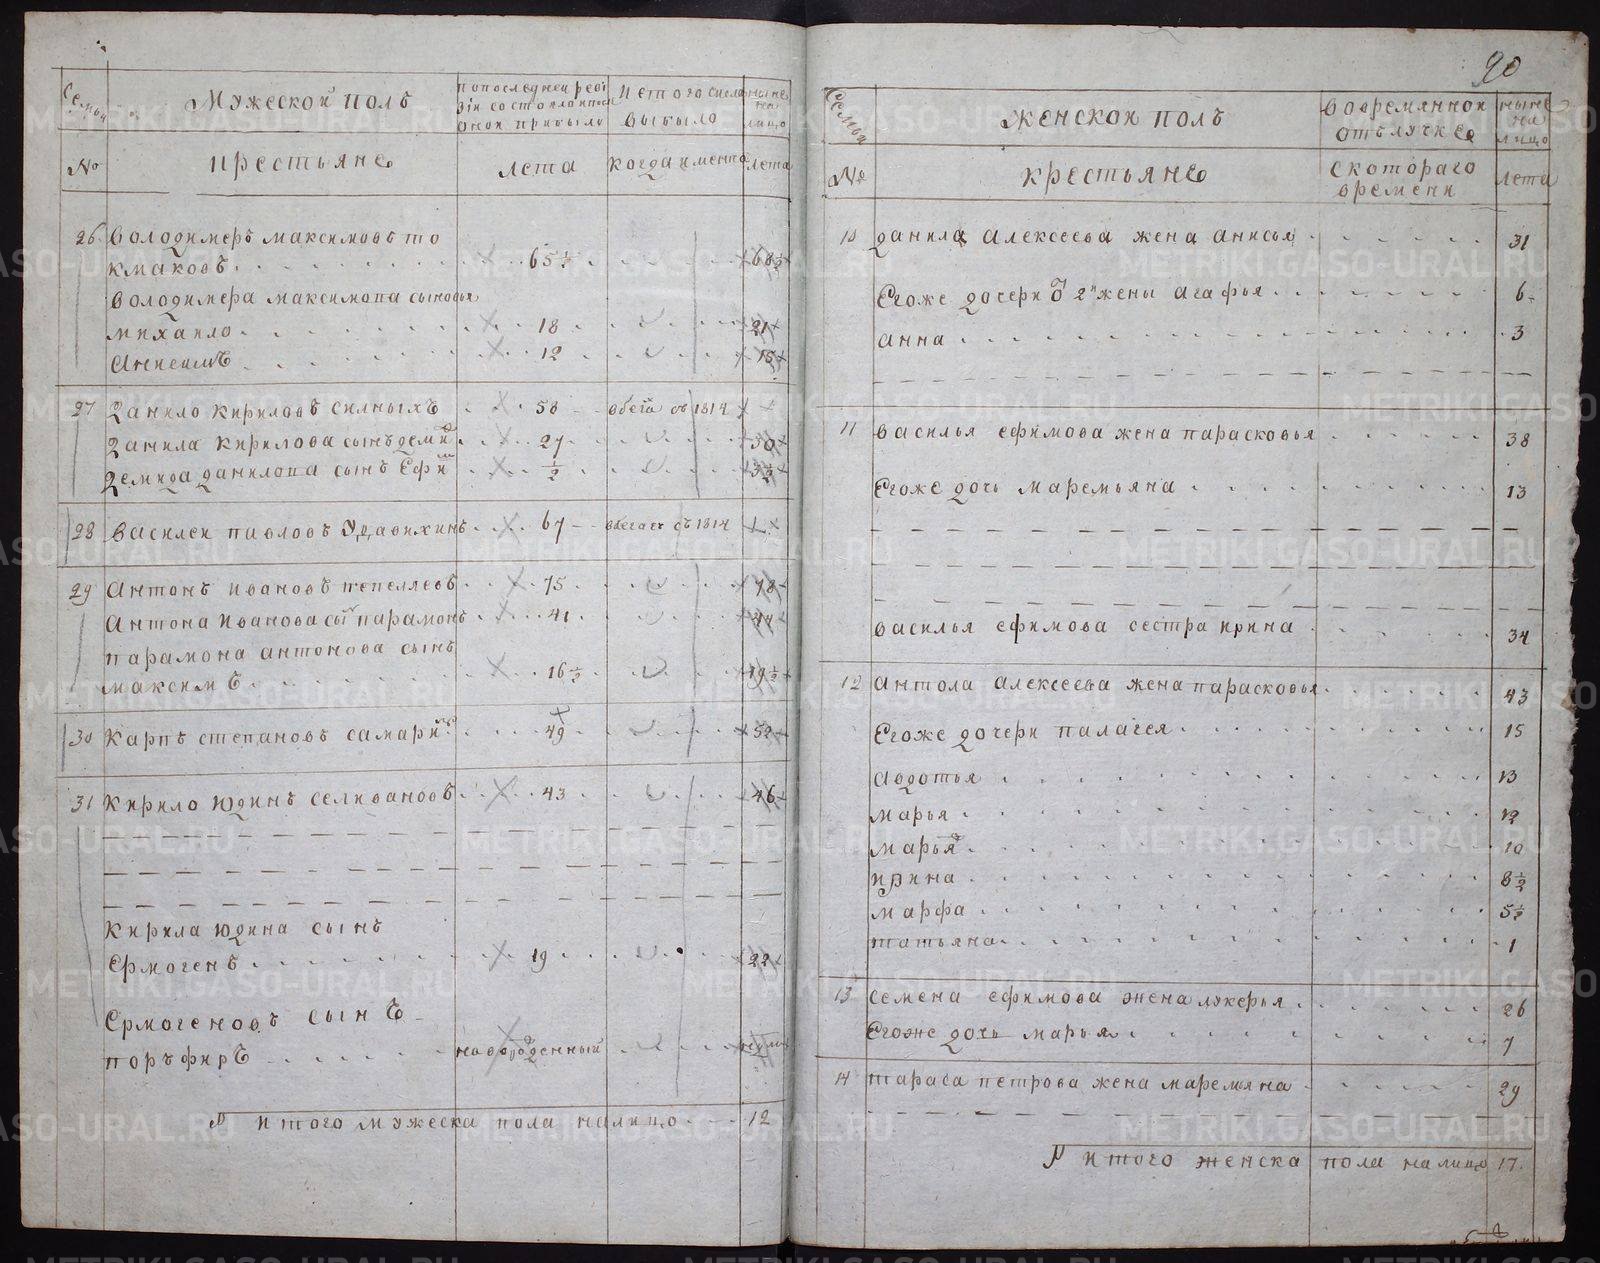 Семьи
Мужеской полъ
по последней реви
зіи состояло и после
оной прибыло
Ис того числа
выбыло
ныне
на
лицо
№
крестьяне
лета
когда имянно
лета
26 Володимеръ Максимовъ то
кмаковъ 65½ 68½
Володимера Максимова сыновья
Михаило 18 21
Анисимъ 12 15
27 Данило Кириловъ Силныхъ 58 в бегах съ 1814
Данила Кирилова сынъ Демид 27 30
Демида Данилова сынъ Ефим ½ 3½
28 Василеи Павловъ 67 в бегах съ 1814
29 Антонъ Ивановъ Пепеляевъ 75 78
Антона Иванова сын Парамонъ 41 44
Парамона Антонова сынъ
Максимъ 16½ 19½
30 Карпъ Степановъ Самарин 49 52
31 Кирило Юдинъ Селивановъ 43 46
Кирила Юдина сынъ
Ермогенъ 19 22
Ермогеновъ сынъ
Порѣфиръ новорожденный
Итого мужеска пола налицо 12
90
Семьи
Женской полъ
Во временной
отълучке
ныне
на
лицо
№
крестьяне
с котораго
времени
лета
10 Данила Алексеева жена Анисья 31
Егоже дочери от 2й жены Агафья 6
Анна 3
11 Василья Ефимова жена Парасковья 38
Егоже дочь Маремьяна 13
Василья Ефимова сестра Ирина 34
12 Антона Алексеева жена Парасковья 43
Егоже дочери Палагея 15
Авдотья 13
Марья 12
Марья 10
Ирина 8½
Марфа 5½
Татьяна 1
13 Семена Ефимова жена Лукерья 26
Егоже дочь Марья 7
14 Тараса Петрова жена Маремьяна 29
Итого женска пола налицо 17
METRIKI.GASO-URAL.RU